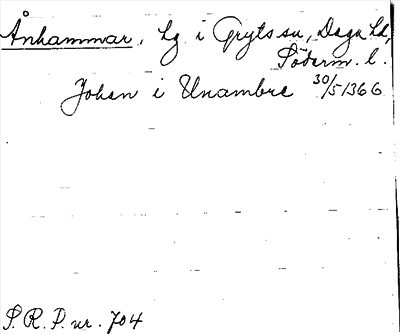 Ånhammar, lg i Gryts sn, Daga hd,
Söderm. l.
Johan i Unambre 30/5 1366
S.R.P. nr. 704